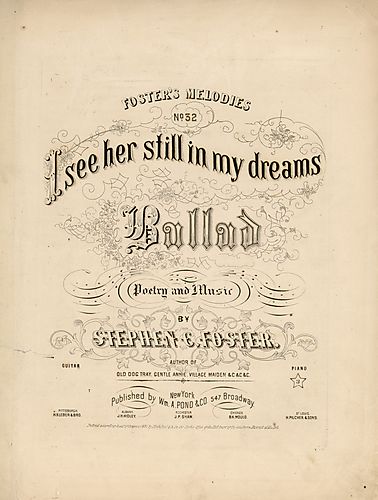 FOSTER'S MELODIES
No 32
I see her still in my dreams
Ballad
Poetry and Music
BY
STEPHEN C. FOSTER.
GUITAR
PIANO
AUTHOR OF
OLD DOG TRAY, GENTLE ANNIE, VILLAGE MAIDEN &C &C &C.
New York
Published by Wm. A. POND & CO. 547 Broadway
PITTSBURGH
H. KLEBER & BRO.
ALBANY
J.H. HIDLEY.
ROCHESTER
J.P. SHAW.
CHICAGO
ST LOUIS
H. PILCHER & SONS.